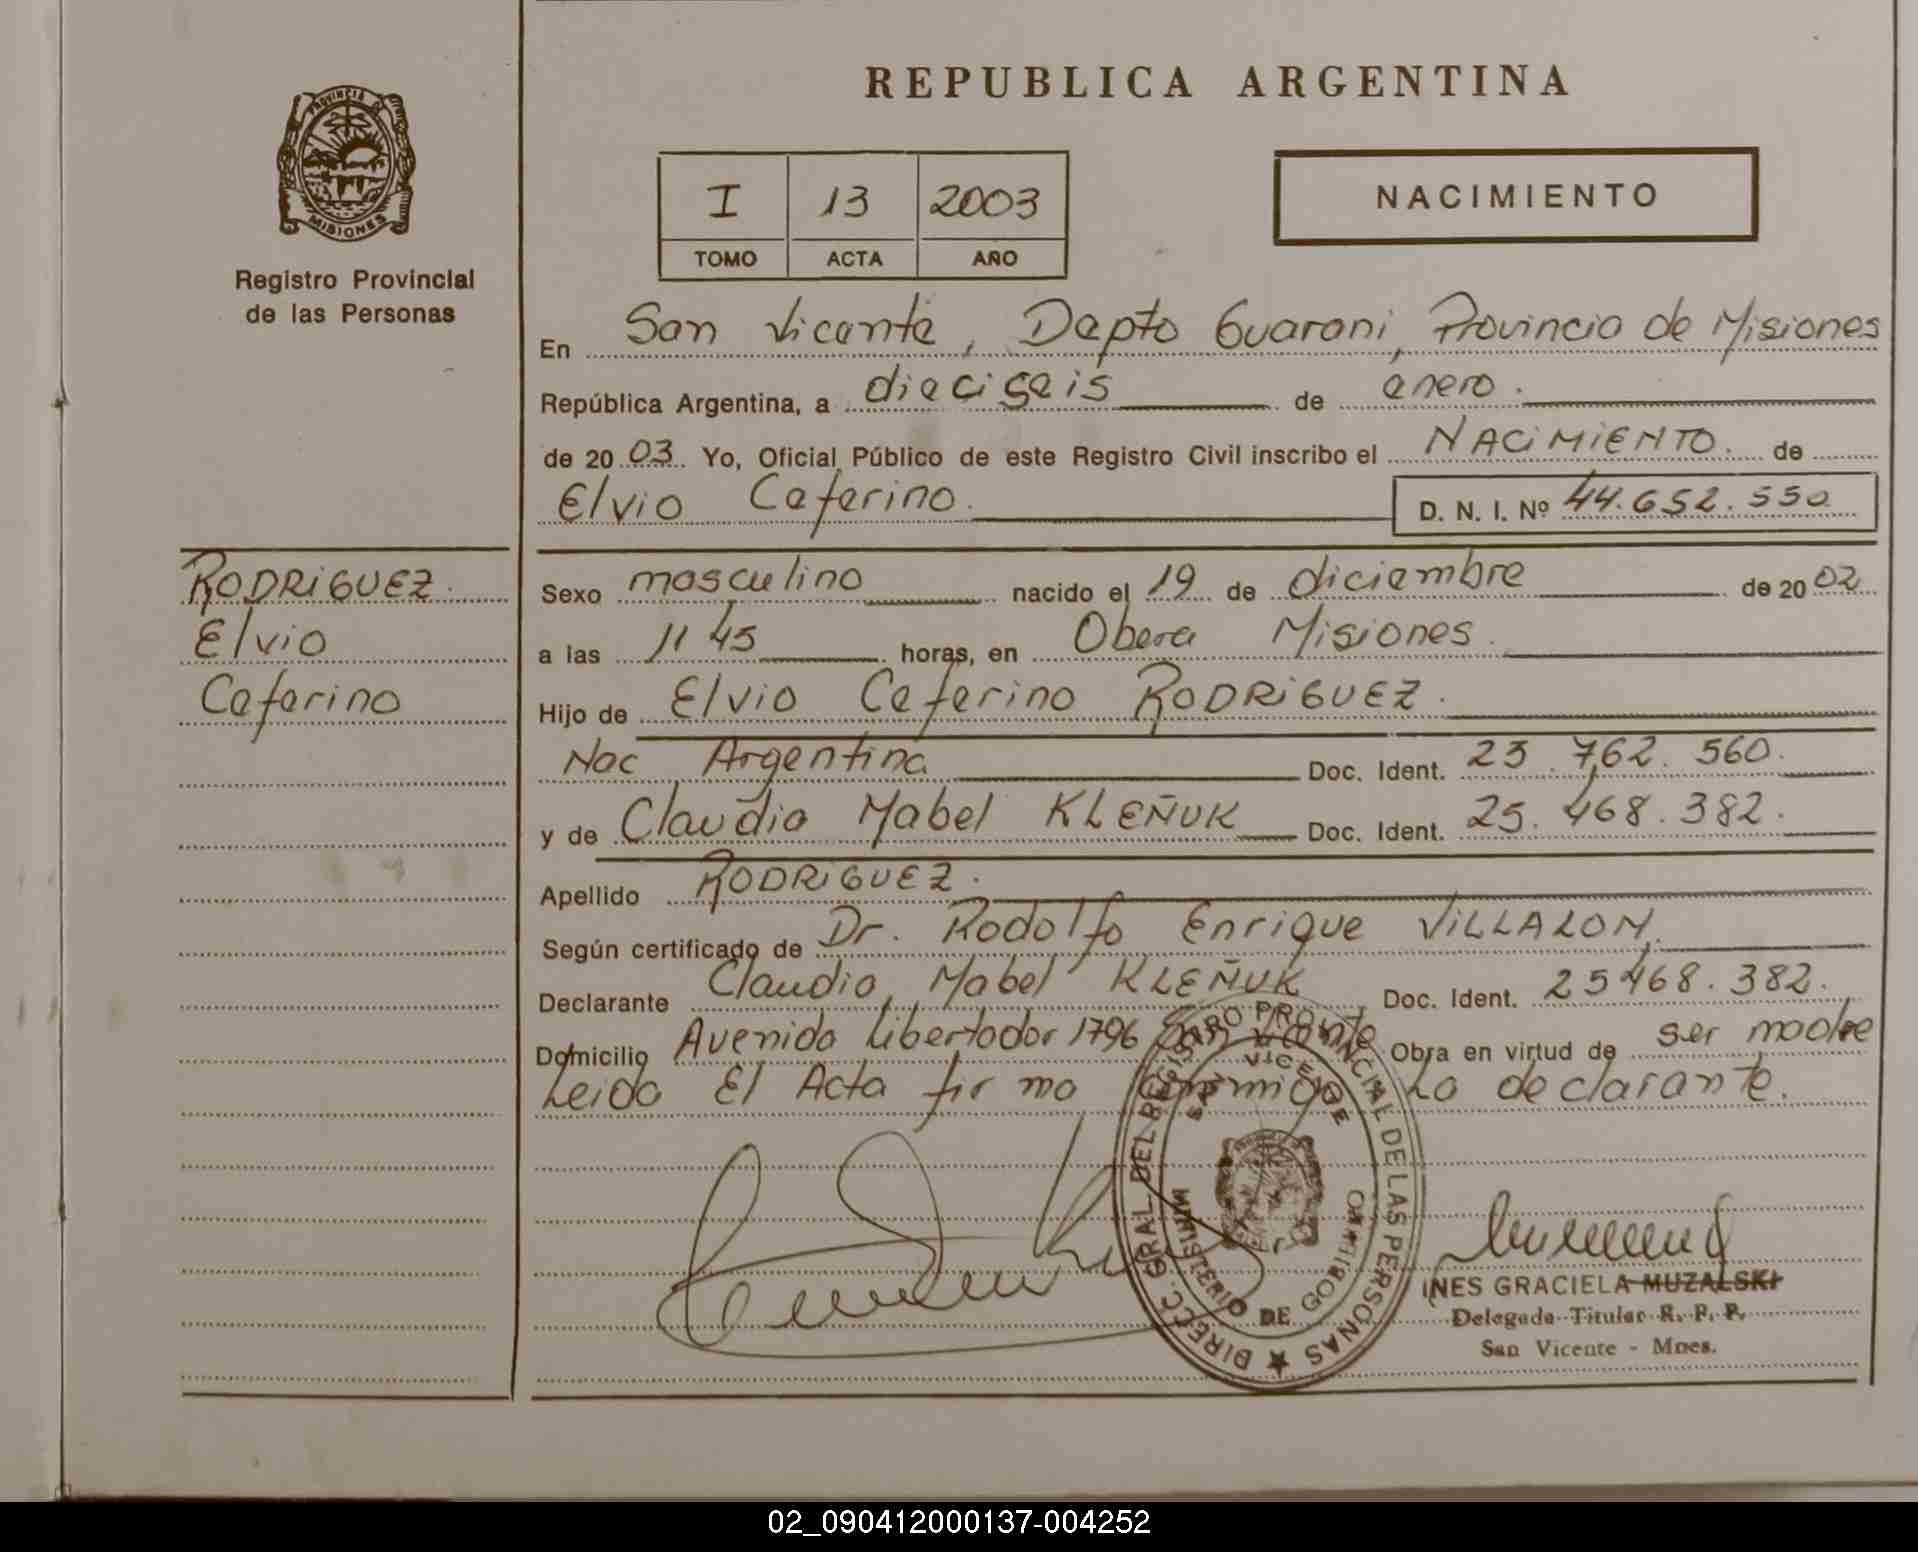 REPUBLICA ARGENTINA
PROVINCIA DE MISIONES
Registro Provincial
de las Personas
I 13 2003
TOMO ACTA AÑO
NACIMIENTO
En San Vicente, Depto Guarani, Provincia de Misiones
República Argentina, a dieciseis de enero.
de 20 03 Yo, Oficial Público de este Registro Civil inscribo el NACIMIENTO. de
Elvio Ceferino. D. N. I. Nº 44.652.550
RODRIGUEZ.
Elvio
Ceferino
Sexo masculino nacido el 19 de diciembre de 20 02
a las 11 45 horas, en Obera Misiones.
Hijo de Elvio Ceferino RODRIGUEZ.
Nac Argentina Doc. Ident. 23.762.560.
y de Claudia Mabel KLEÑUK Doc. Ident. 25.468.382.
Apellido RODRIGUEZ.
Según certificado de Dr. Rodolfo Enrique VILLALON,
Declarante Claudia Mabel KLEÑUK Doc. Ident. 25468.382.
Domicilio Avenida Libertador 1796 San Vicente Obra en virtud de ser madre
Leida El Acta firma conmigo La declarante.
DIRECC. GRAL. DEL REGISTRO PROVINCIAL DE LAS PERSONAS
SAN VICENTE
MINISTERIO DE GOBIERNO
INES GRACIELA MUZALSKI
Delegada Titular R. P. P.
San Vicente - Mnes.
02_090412000137-004252